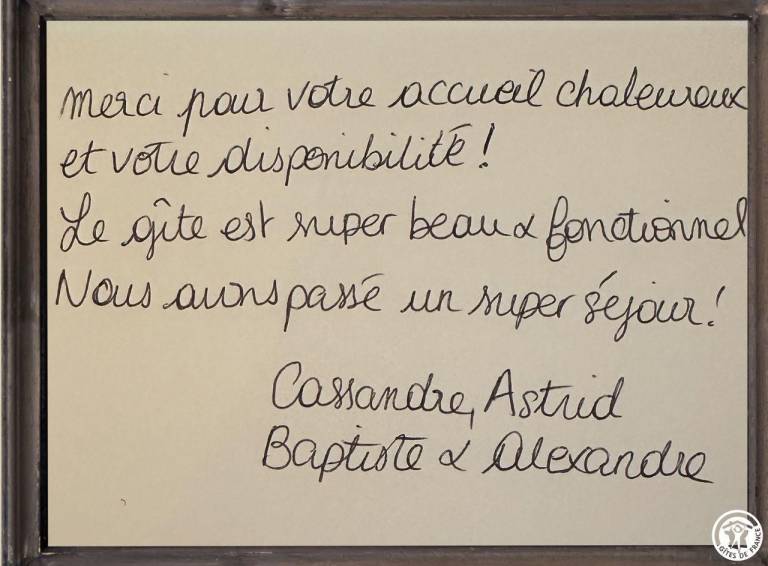 Merci pour votre accueil chaleureux
et votre disponibilité !
Le gîte est super beau & fonctionnel
Nous avons passé un super séjour !
Cassandre, Astrid
Baptiste & Alexandre
GÎTES DE FRANCE